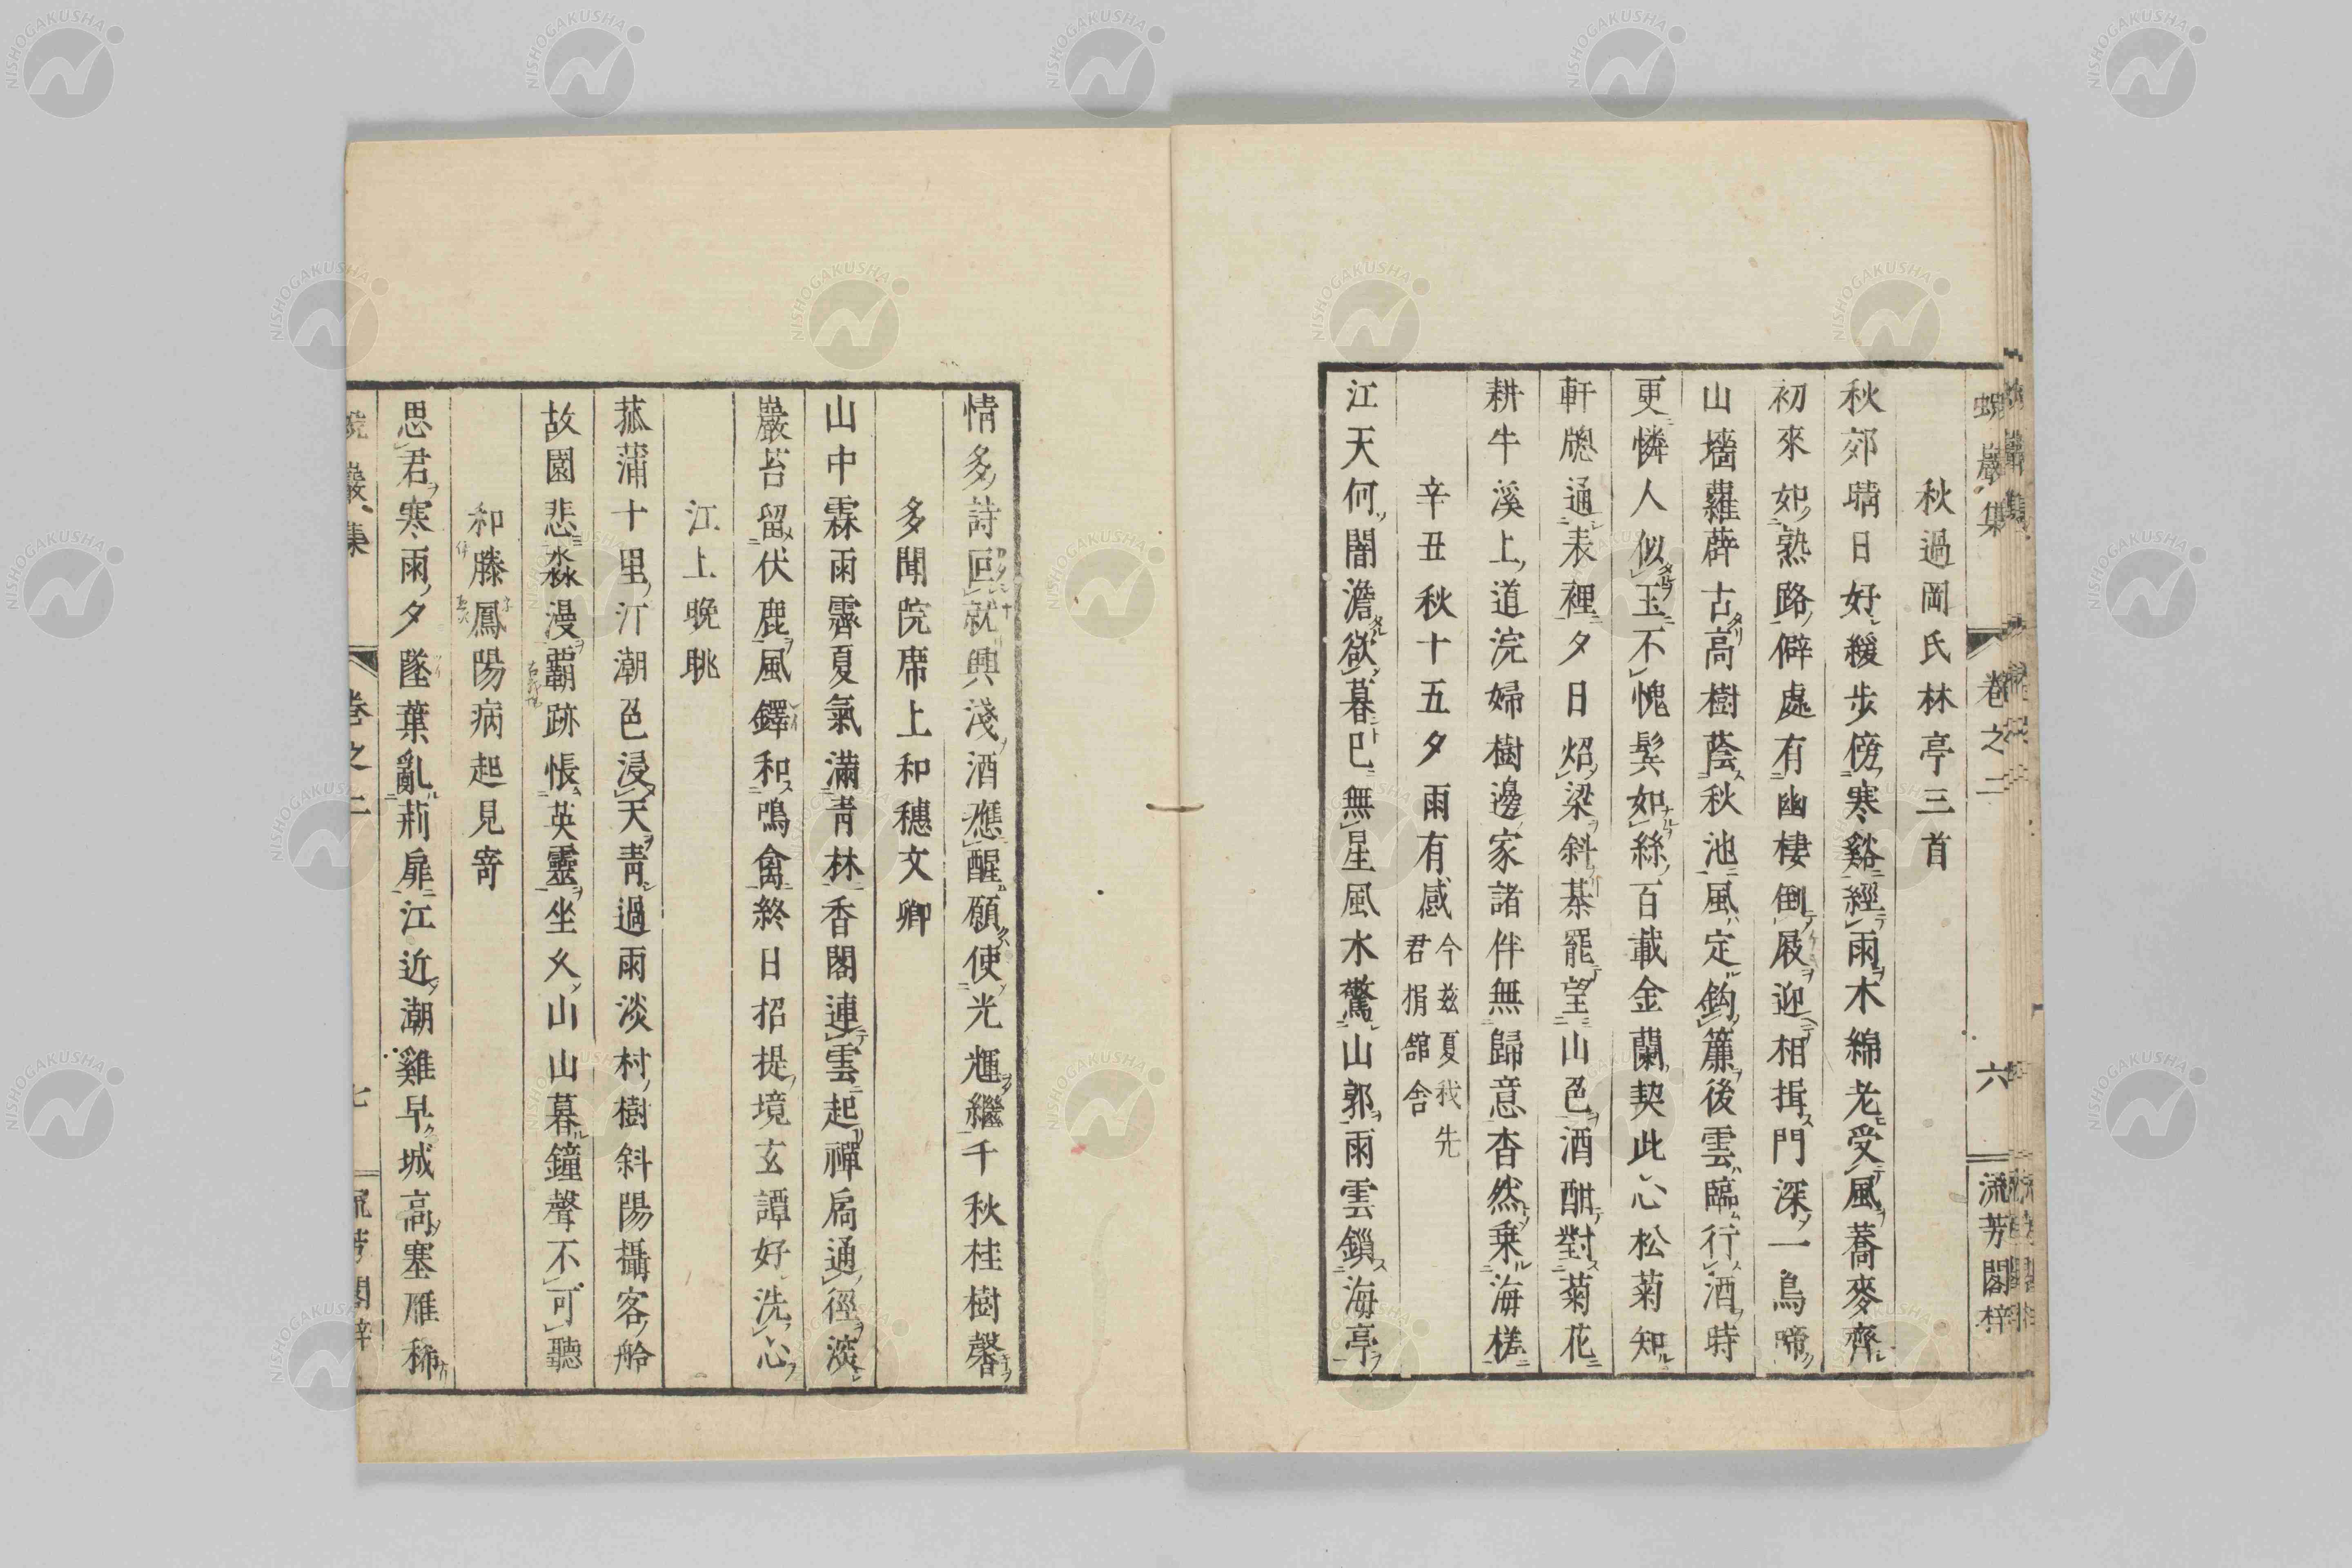 蛻巖集 卷之二 六 流芳閣梓
秋過岡氏林亭三首
秋郊晴日好緩步傍寒谿經雨木綿老受風蕎麥齊
初來如熟路僻處有幽棲倒屐迎相揖門深一鳥啼
山墻蘿薜古高樹蔭秋池風定鈎簾後雲臨行酒時
更憐人似玉不愧髮如絲百載金蘭契此心松菊知
軒牕通表裡夕日炤梁斜棊罷望山色酒酣對菊花
耕牛溪上道浣婦樹邊家諸伴無歸意杳然乗海槎
辛丑秋十五夕雨有感今兹夏我先君捐舘舍
江天何闇澹欲暮已無星風水驚山郭雨雲鎖海亭
情多詩回就興淺酒應醒願使光𤯝繼千秋桂樹馨
多聞院席上和穗文卿
山中霖雨霽夏氣滿青林香閣連雲起禪扃通徑深
巖苔留伏鹿風鐸和鳴禽終日招提境玄譚好洗心
江上晚眺
菰蒲十里汀潮色浸天青過雨淡村樹斜陽攝客舲
故園悲淼漫覇跡悵英靈坐久山山暮鐘聲不可聽
和滕鳳陽病起見寄
思君寒雨夕墜葉亂荊扉江近潮雞早城高塞雁稀
蛻巖集 卷之二 七 流芳閣梓
NISHOGAKUSHA